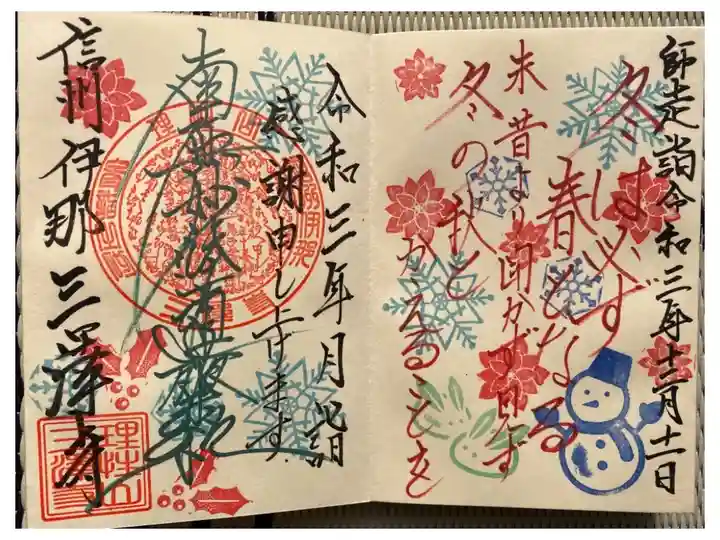 師走詣令和三年十二月十一日
冬は必ず
春となる
未昔より聞かず見ず
冬の秋と
かえることを
令和三年月詣
感謝申し上げます
南無妙法蓮華経
信州伊那三澤寺